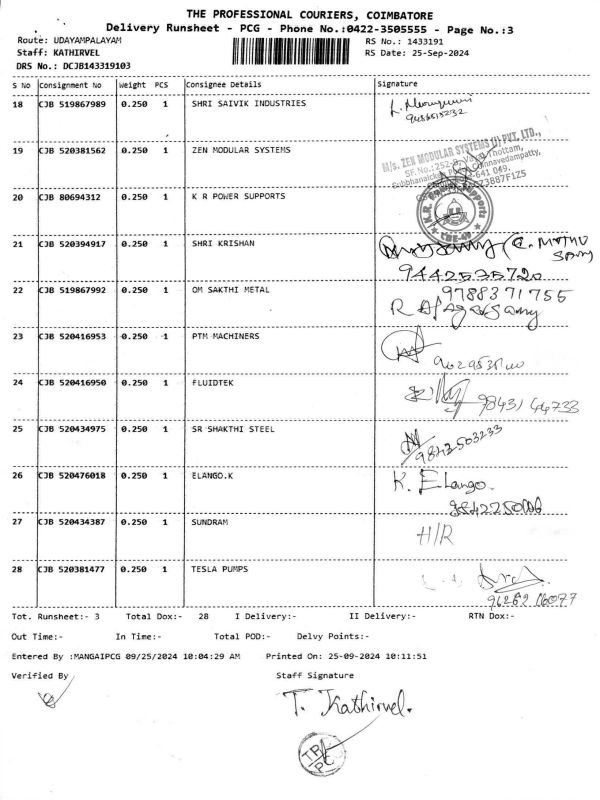 THE PROFESSIONAL COURIERS, COIMBATORE
Delivery Runsheet - PCG - Phone No.:0422-3505555 - Page No.:3
Route: UDAYAMPALAYAM RS No.: 1433191
Staff: KATHIRVEL RS Date: 25-Sep-2024
DRS No.: DCJB143319103
S No Consignment No Weight PCS Consignee Details Signature
18 CJB 519867989 0.250 1 SHRI SAIVIK INDUSTRIES
19 CJB 520381562 0.250 1 ZEN MODULAR SYSTEMS
M/s. ZEN MODULAR SYSTEMS (I) PVT. LTD.,
20 CJB 80694312 0.250 1 K R POWER SUPPORTS
K.R. Power Supports
CBE-49
21 CJB 520394917 0.250 1 SHRI KRISHAN
9442535720
22 CJB 519867992 0.250 1 OM SAKTHI METAL 9788371755
23 CJB 520416953 0.250 1 PTM MACHINERS
24 CJB 520416950 0.250 1 FLUIDTEK
98431 44733
25 CJB 520434975 0.250 1 SR SHAKTHI STEEL
9842503233
26 CJB 520476018 0.250 1 ELANGO.K K. Elango.
27 CJB 520434387 0.250 1 SUNDRAM H/R
28 CJB 520381477 0.250 1 TESLA PUMPS
Tot. Runsheet:- 3 Total Dox:- 28 I Delivery:- II Delivery:- RTN Dox:-
Out Time:- In Time:- Total POD:- Delvy Points:-
Entered By :MANGAIPCG 09/25/2024 10:04:29 AM Printed On: 25-09-2024 10:11:51
Verified By Staff Signature
T. Kathirvel.